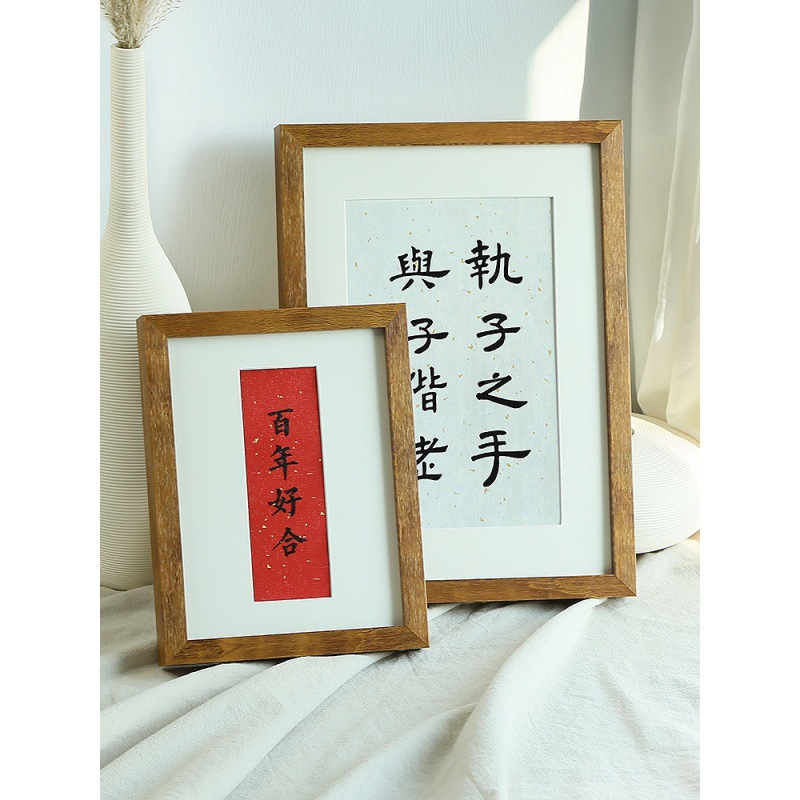 執子之手
與子偕老
百年好合